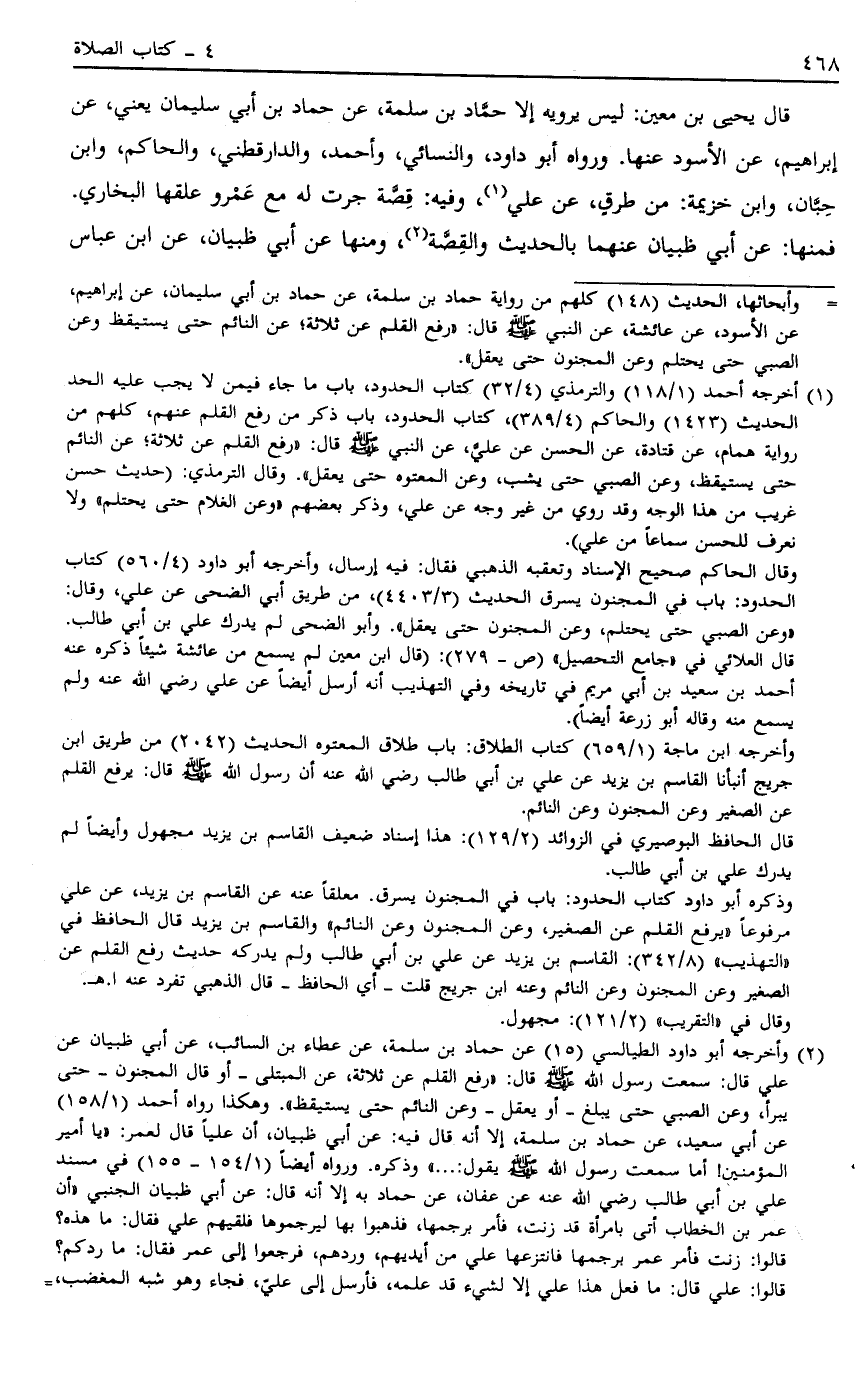 ٤٦٨
٤ ـ كتاب الصلاة
قال يحيى بن معين: ليس يرويه إلا حمَّاد بن سلمة، عن حماد بن أبي سليمان يعني، عن
إبراهيم، عن الأسود عنها. ورواه أبو داود، والنسائي، وأحمد، والدارقطني، والحاكم، وابن
حِبَّان، وابن خزيمة: من طرقٍ، عن علي(١)، وفيه: قِصَّة جرت له مع عَمْرو علقها البخاري.
فمنها: عن أبي ظبيان عنهما بالحديث والقِصَّة(٢)، ومنها عن أبي ظبيان، عن ابن عباس
= وأبحاثها، الحديث (١٤٨) كلهم من رواية حماد بن سلمة، عن حماد بن أبي سليمان، عن إبراهيم،
عن الأسود، عن عائشة، عن النبي ﷺ قال: «رفع القلم عن ثلاثة؛ عن النائم حتى يستيقظ وعن
الصبي حتى يحتلم وعن المجنون حتى يعقل».
(١) أخرجه أحمد (١١٨/١) والترمذي (٣٢/٤) كتاب الحدود، باب ما جاء فيمن لا يجب عليه الحد
الحديث (١٤٢٣) والحاكم (٣٨٩/٤)، كتاب الحدود، باب ذكر من رفع القلم عنهم، كلهم من
رواية همام، عن قتادة، عن الحسن عن عليٍّ، عن النبي ﷺ قال: «رفع القلم عن ثلاثة؛ عن النائم
حتى يستيقظ، وعن الصبي حتى يشب، وعن المعتوه حتى يعقل». وقال الترمذي: (حديث حسن
غريب من هذا الوجه وقد روي من غير وجه عن علي، وذكر بعضهم «وعن الغلام حتى يحتلم» ولا
نعرف للحسن سماعاً من علي).
وقال الحاكم صحيح الإسناد وتعقبه الذهبي فقال: فيه إرسال، وأخرجه أبو داود (٥٦٠/٤) كتاب
الحدود: باب في المجنون يسرق الحديث (٤٤٠٣/٣)، من طريق أبي الضحى عن علي، وقال:
«وعن الصبي حتى يحتلم، وعن المجنون حتى يعقل». وأبو الضحى لم يدرك علي بن أبي طالب.
قال العلائي في «جامع التحصيل» (ص ـ ٢٧٩): (قال ابن معين لم يسمع من عائشة شيئاً ذكره عنه
أحمد بن سعيد بن أبي مريم في تاريخه وفي التهذيب أنه أرسل أيضاً عن علي رضي الله عنه ولم
يسمع منه وقاله أبو زرعة أيضاً).
وأخرجه ابن ماجة (٦٥٩/١) كتاب الطلاق: باب طلاق المعتوه الحديث (٢٠٤٢) من طريق ابن
جريج أنبأنا القاسم بن يزيد عن علي بن أبي طالب رضي الله عنه أن رسول الله ﷺ قال: يرفع القلم
عن الصغير وعن المجنون وعن النائم.
قال الحافظ البوصيري في الزوائد (١٢٩/٢): هذا إسناد ضعيف القاسم بن يزيد مجهول وأيضاً لم
يدرك علي بن أبي طالب.
وذكره أبو داود كتاب الحدود: باب في المجنون يسرق. معلقاً عنه عن القاسم بن يزيد، عن علي
مرفوعاً «يرفع القلم عن الصغير، وعن المجنون وعن النائم» والقاسم بن يزيد قال الحافظ في
«التهذيب» (٣٤٢/٨): القاسم بن يزيد عن علي بن أبي طالب ولم يدركه حديث رفع القلم عن
الصغير وعن المجنون وعن النائم وعنه ابن جريج قلت ـ أي الحافظ ـ قال الذهبي تفرد عنه ا.هـ.
وقال في «التقريب» (١٢١/٢): مجهول.
(٢) وأخرجه أبو داود الطيالسي (١٥) عن حماد بن سلمة، عن عطاء بن السائب، عن أبي ظبيان عن
علي قال: سمعت رسول الله ﷺ قال: «رفع القلم عن ثلاثة، عن المبتلى ـ أو قال المجنون ـ حتى
يبرأ، وعن الصبي حتى يبلغ ـ أو يعقل ـ وعن النائم حتى يستيقظ». وهكذا رواه أحمد (١٥٨/١)
عن أبي سعيد، عن حماد بن سلمة، إلا أنه قال فيه: عن أبي ظبيان، أن علياً قال لعمر: «يا أمير
المؤمنين! أما سمعت رسول الله ﷺ يقول:...» وذكره. ورواه أيضاً (١٥٤/١ ـ ١٥٥) في مسند
علي بن أبي طالب رضي الله عنه عن عفان، عن حماد به إلا أنه قال: عن أبي ظبيان الجنبي «أن
عمر بن الخطاب أتى بامرأة قد زنت، فأمر برجمها، فذهبوا بها ليرجموها فلقيهم علي فقال: ما هذه؟
قالوا: زنت فأمر عمر برجمها فانتزعها علي من أيديهم، وردهم، فرجعوا إلى عمر فقال: ما ردكم؟
قالوا: علي قال: ما فعل هذا علي إلا لشيء قد علمه، فأرسل إلى عليّ، فجاء وهو شبه المغضب، =